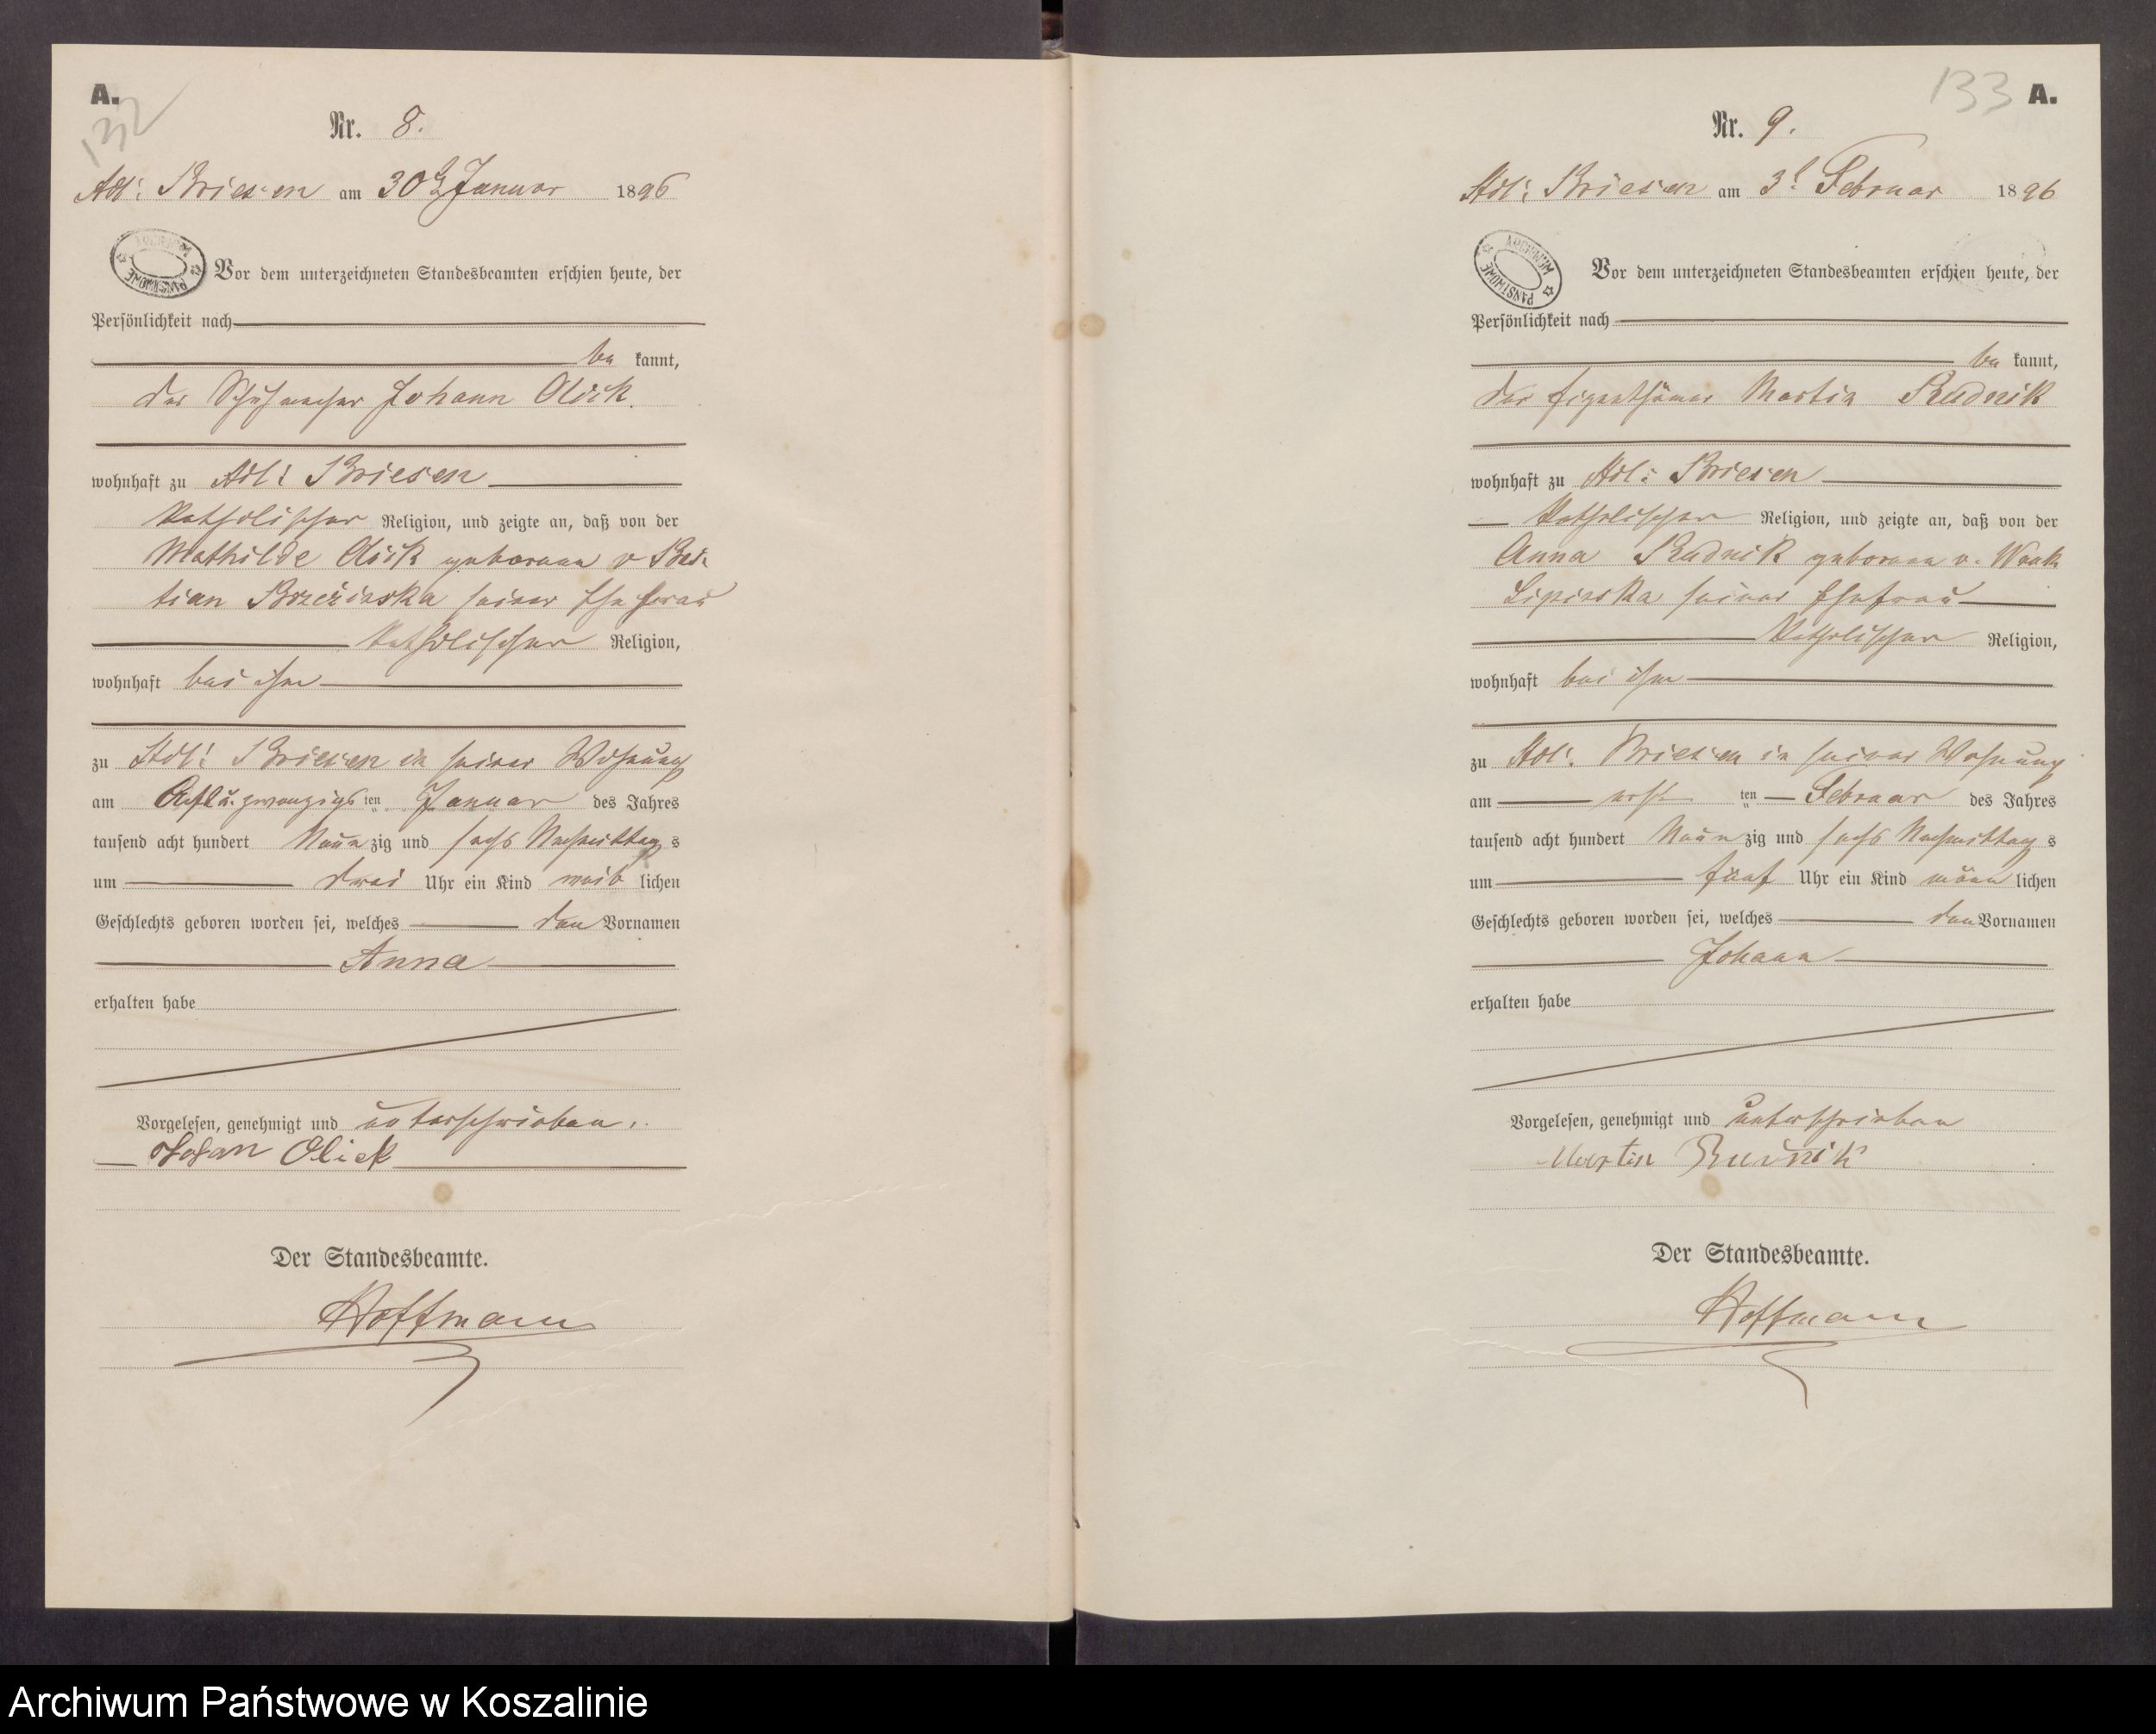 A.
132
Nr. 8.
Adl: Briesen am 30t Januar 1896
ARCHIWUM PAŃSTWOWE
Vor dem unterzeichneten Standesbeamten erschien heute, der
Persönlichkeit nach
be kannt,
der Schuhmacher Johann Olick.
wohnhaft zu Adl: Briesen
katholischer Religion, und zeigte an, daß von der
Mathilde Olick geborene v
Brzezinska seiner Ehefrau
katholischer Religion,
wohnhaft bei ihm
zu Adl: Briesen in seiner Wohnung
am Acht u. zwanzigs ten Januar des Jahres
tausend acht hundert Neun zig und sechs Nachmittag s
um drei Uhr ein Kind weib lichen
Geschlechts geboren worden sei, welches den Vornamen
Anna
erhalten habe
Vorgelesen, genehmigt und unterschrieben.
Johan Olick
Der Standesbeamte.
Hoffmann
133 A.
Nr. 9.
Adl: Briesen am 3t Februar 1896
ARCHIWUM PAŃSTWOWE
Vor dem unterzeichneten Standesbeamten erschien heute, der
Persönlichkeit nach
be kannt,
der Eigenthümer Martin Rudnik
wohnhaft zu Adl: Briesen
katholischer Religion, und zeigte an, daß von der
Anna Rudnik geborene v.
Lipinska seiner Ehefrau
katholischer Religion,
wohnhaft bei ihm
zu Adl: Briesen in seiner Wohnung
am erst ten Februar des Jahres
tausend acht hundert Neun zig und sechs Nachmittag s
um fünf Uhr ein Kind männ lichen
Geschlechts geboren worden sei, welches den Vornamen
Johann
erhalten habe
Vorgelesen, genehmigt und unterschrieben
Martin Rudnik
Der Standesbeamte.
Hoffmann
Archiwum Państwowe w Koszalinie